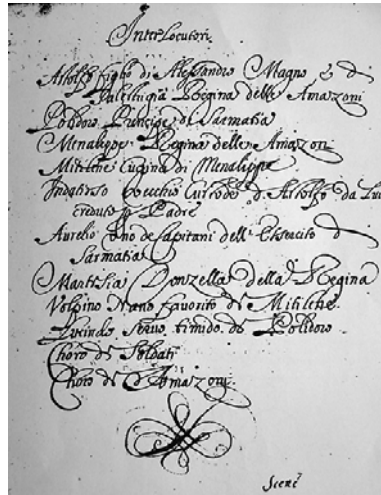 Interlocutori.
Astolfo figlio di Alessandro Magno e di
Regina delle Amazoni
Polidoro Principe di Sarmatia
Menalippe Regina delle Amazon
Mitilche Cugina di Menalippe
Vecchio Custode d'Astolfo da Lui
creduto Padre
Aurelio Uno de Capitani dell' Essercito di
Sarmatia
Martesia Donzella della Regina
Volpino Nano favorito di Mitilche
Lucindo Servo timido di Polidoro
Choro di Soldati
Choro d'Amazoni.
Scene